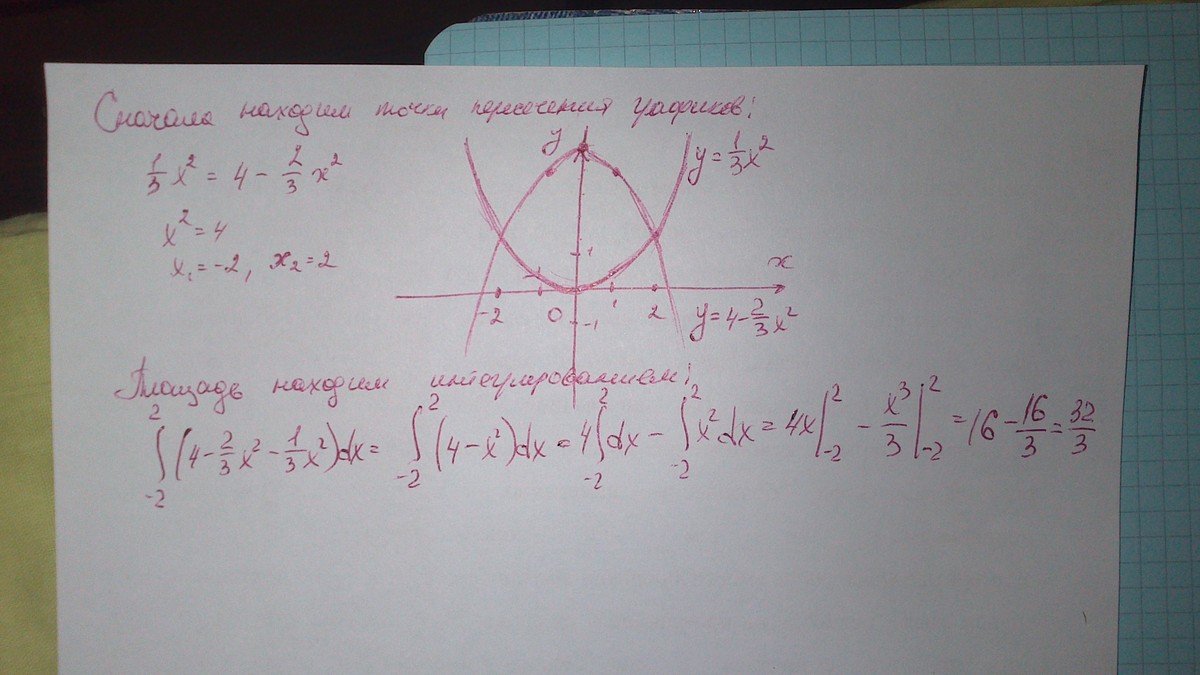 Сначала находим точки пересечения графиков:
1/3 x² = 4 - 2/3 x²
x² = 4
x₁ = -2, x₂ = 2
y
y = 1/3 x²
1
x
-1
1
-2
0
2
-1
y = 4 - 2/3 x²
Площадь находим интегрированием:
∫₋₂² (4 - 2/3 x² - 1/3 x²)dx = ∫₋₂² (4 - x²)dx = 4∫₋₂² dx - ∫₋₂² x² dx = 4x|₋₂² - x³/3|₋₂² = 16 - 16/3 = 32/3